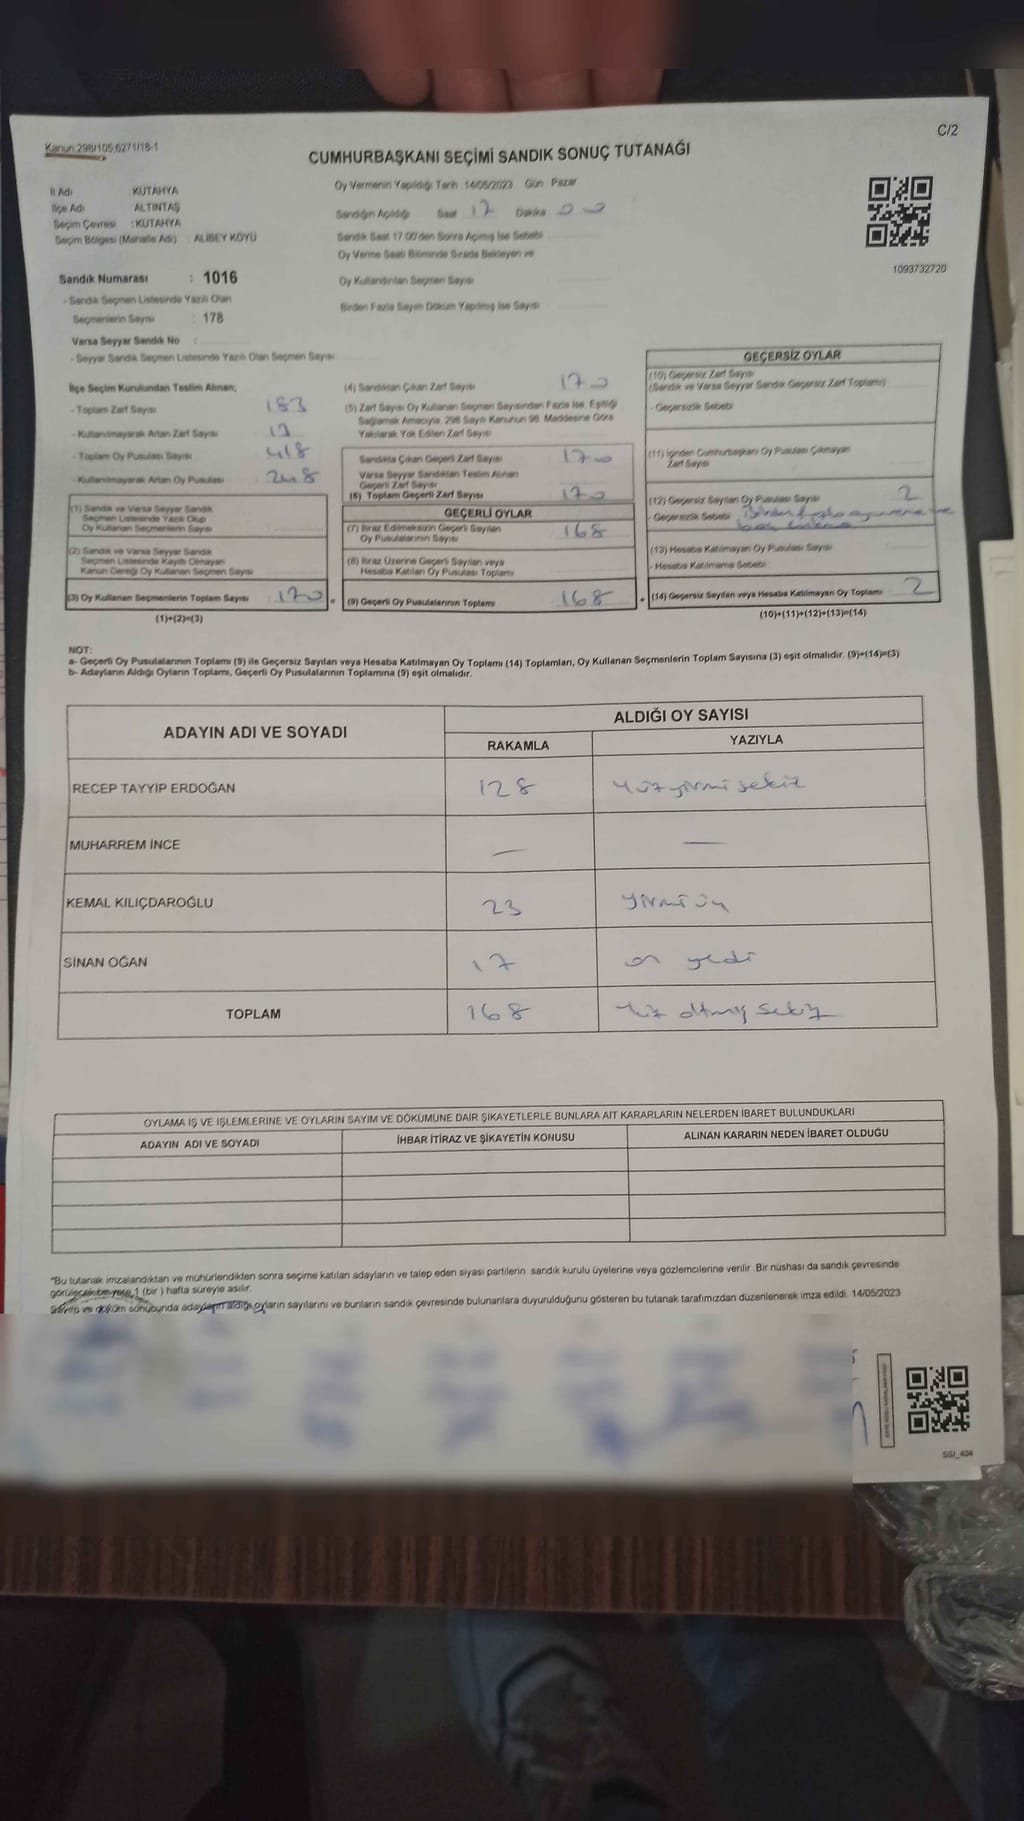 C/2
Kanun:298/105;6271/18-1
CUMHURBAŞKANI SEÇİMİ SANDIK SONUÇ TUTANAĞI
İl Adı KÜTAHYA
İlçe Adı ALTINTAŞ
Seçim Çevresi : KÜTAHYA
Seçim Bölgesi (Mahalle Adı) : ALİBEY KÖYÜ
Oy Vermenin Yapıldığı Tarih : 14/05/2023 Gün : Pazar
Sandığın Açıldığı Saat 17 Dakika 00
Sandık Saat 17:00'den Sonra Açımış İse Sebebi
Oy Verme Saati Bitiminde Sırada Bekleyen ve
Oy Kullandırılan Seçmen Sayısı
Birden Fazla Sayım Döküm Yapılmış İse Sayısı
1093732720
Sandık Numarası : 1016
- Sandık Seçmen Listesinde Yazılı Olan
Seçmenlerin Sayısı : 178
Varsa Seyyar Sandık No :
- Seyyar Sandık Seçmen Listesinde Yazılı Olan Seçmen Sayısı
İlçe Seçim Kurulundan Teslim Alınan;
- Toplam Zarf Sayısı 183
- Kullanılmayarak Artan Zarf Sayısı 13
- Toplam Oy Pusulası Sayısı 418
- Kullanılmayarak Artan Oy Pusulası 248
(1) Sandık ve Varsa Seyyar Sandık
Seçmen Listesinde Yazılı Olup
Oy Kullanan Seçmenlerin Sayısı
(2) Sandık ve Varsa Seyyar Sandık
Seçmen Listesinde Kayıtlı Olmayan
Kanun Gereği Oy Kullanan Seçmen Sayısı
(3) Oy Kullanan Seçmenlerin Toplam Sayısı 170
(1)+(2)=(3)
(4) Sandıktan Çıkan Zarf Sayısı 170
(5) Zarf Sayısı Oy Kullanan Seçmen Sayısından Fazla İse, Eşitliği
Sağlamak Amacıyla, 298 Sayılı Kanunun 98. Maddesine Göre
Yakılarak Yok Edilen Zarf Sayısı
Sandıkta Çıkan Geçerli Zarf Sayısı 170
Varsa Seyyar Sandıktan Teslim Alınan
Geçerli Zarf Sayısı
(6) Toplam Geçerli Zarf Sayısı 170
GEÇERLİ OYLAR
(7) İtiraz Edilmeksizin Geçerli Sayılan
Oy Pusulalarının Sayısı 168
(8) İtiraz Üzerine Geçerli Sayılan veya
Hesaba Katılan Oy Pusulası Toplamı
= (9) Geçerli Oy Pusulalarının Toplamı 168
GEÇERSİZ OYLAR
(10) Geçersiz Zarf Sayısı
(Sandık ve Varsa Seyyar Sandık Geçersiz Zarf Toplamı)
- Geçersizlik Sebebi
(11) İçinden Cumhurbaşkanı Oy Pusulası Çıkmayan
Zarf Sayısı
(12) Geçersiz Sayılan Oy Pusulası Sayısı 2
- Geçersizlik Sebebi Birden fazla
(13) Hesaba Katılmayan Oy Pusulası Sayısı
- Hesaba Katılmama Sebebi :
+ (14) Geçersiz Sayılan veya Hesaba Katılmayan Oy Toplamı 2
(10)+(11)+(12)+(13)=(14)
NOT:
a- Geçerli Oy Pusulalarının Toplamı (9) ile Geçersiz Sayılan veya Hesaba Katılmayan Oy Toplamı (14) Toplamları, Oy Kullanan Seçmenlerin Toplam Sayısına (3) eşit olmalıdır. (9)+(14)=(3)
b- Adayların Aldığı Oyların Toplamı, Geçerli Oy Pusulalarının Toplamına (9) eşit olmalıdır.
ADAYIN ADI VE SOYADI ALDIĞI OY SAYISI
RAKAMLA YAZIYLA
RECEP TAYYİP ERDOĞAN 128 Yüzyirmi sekiz
MUHARREM İNCE — —
KEMAL KILIÇDAROĞLU 23 yirmi üç
SİNAN OĞAN 17 on yedi
TOPLAM 168 Yüz altmış sekiz
OYLAMA İŞ VE İŞLEMLERİNE VE OYLARIN SAYIM VE DÖKÜMÜNE DAİR ŞİKAYETLERLE BUNLARA AİT KARARLARIN NELERDEN İBARET BULUNDUKLARI
ADAYIN ADI VE SOYADI İHBAR İTİRAZ VE ŞİKAYETİN KONUSU ALINAN KARARIN NEDEN İBARET OLDUĞU
"Bu tutanak imzalandıktan ve mühürlendikten sonra seçime katılan adayların ve talep eden siyasi partilerin sandık kurulu üyelerine veya gözlemcilerine verilir. Bir nüshası da sandık çevresinde
görülecek bir yere 1 (bir ) hafta süreyle asılır.
Sayım ve döküm sonucunda adayların aldığı oyların sayılarını ve bunların sandık çevresinde bulunanlara duyurulduğunu gösteren bu tutanak tarafımızdan düzenlenerek imza edildi. 14/05/2023
SSI_404